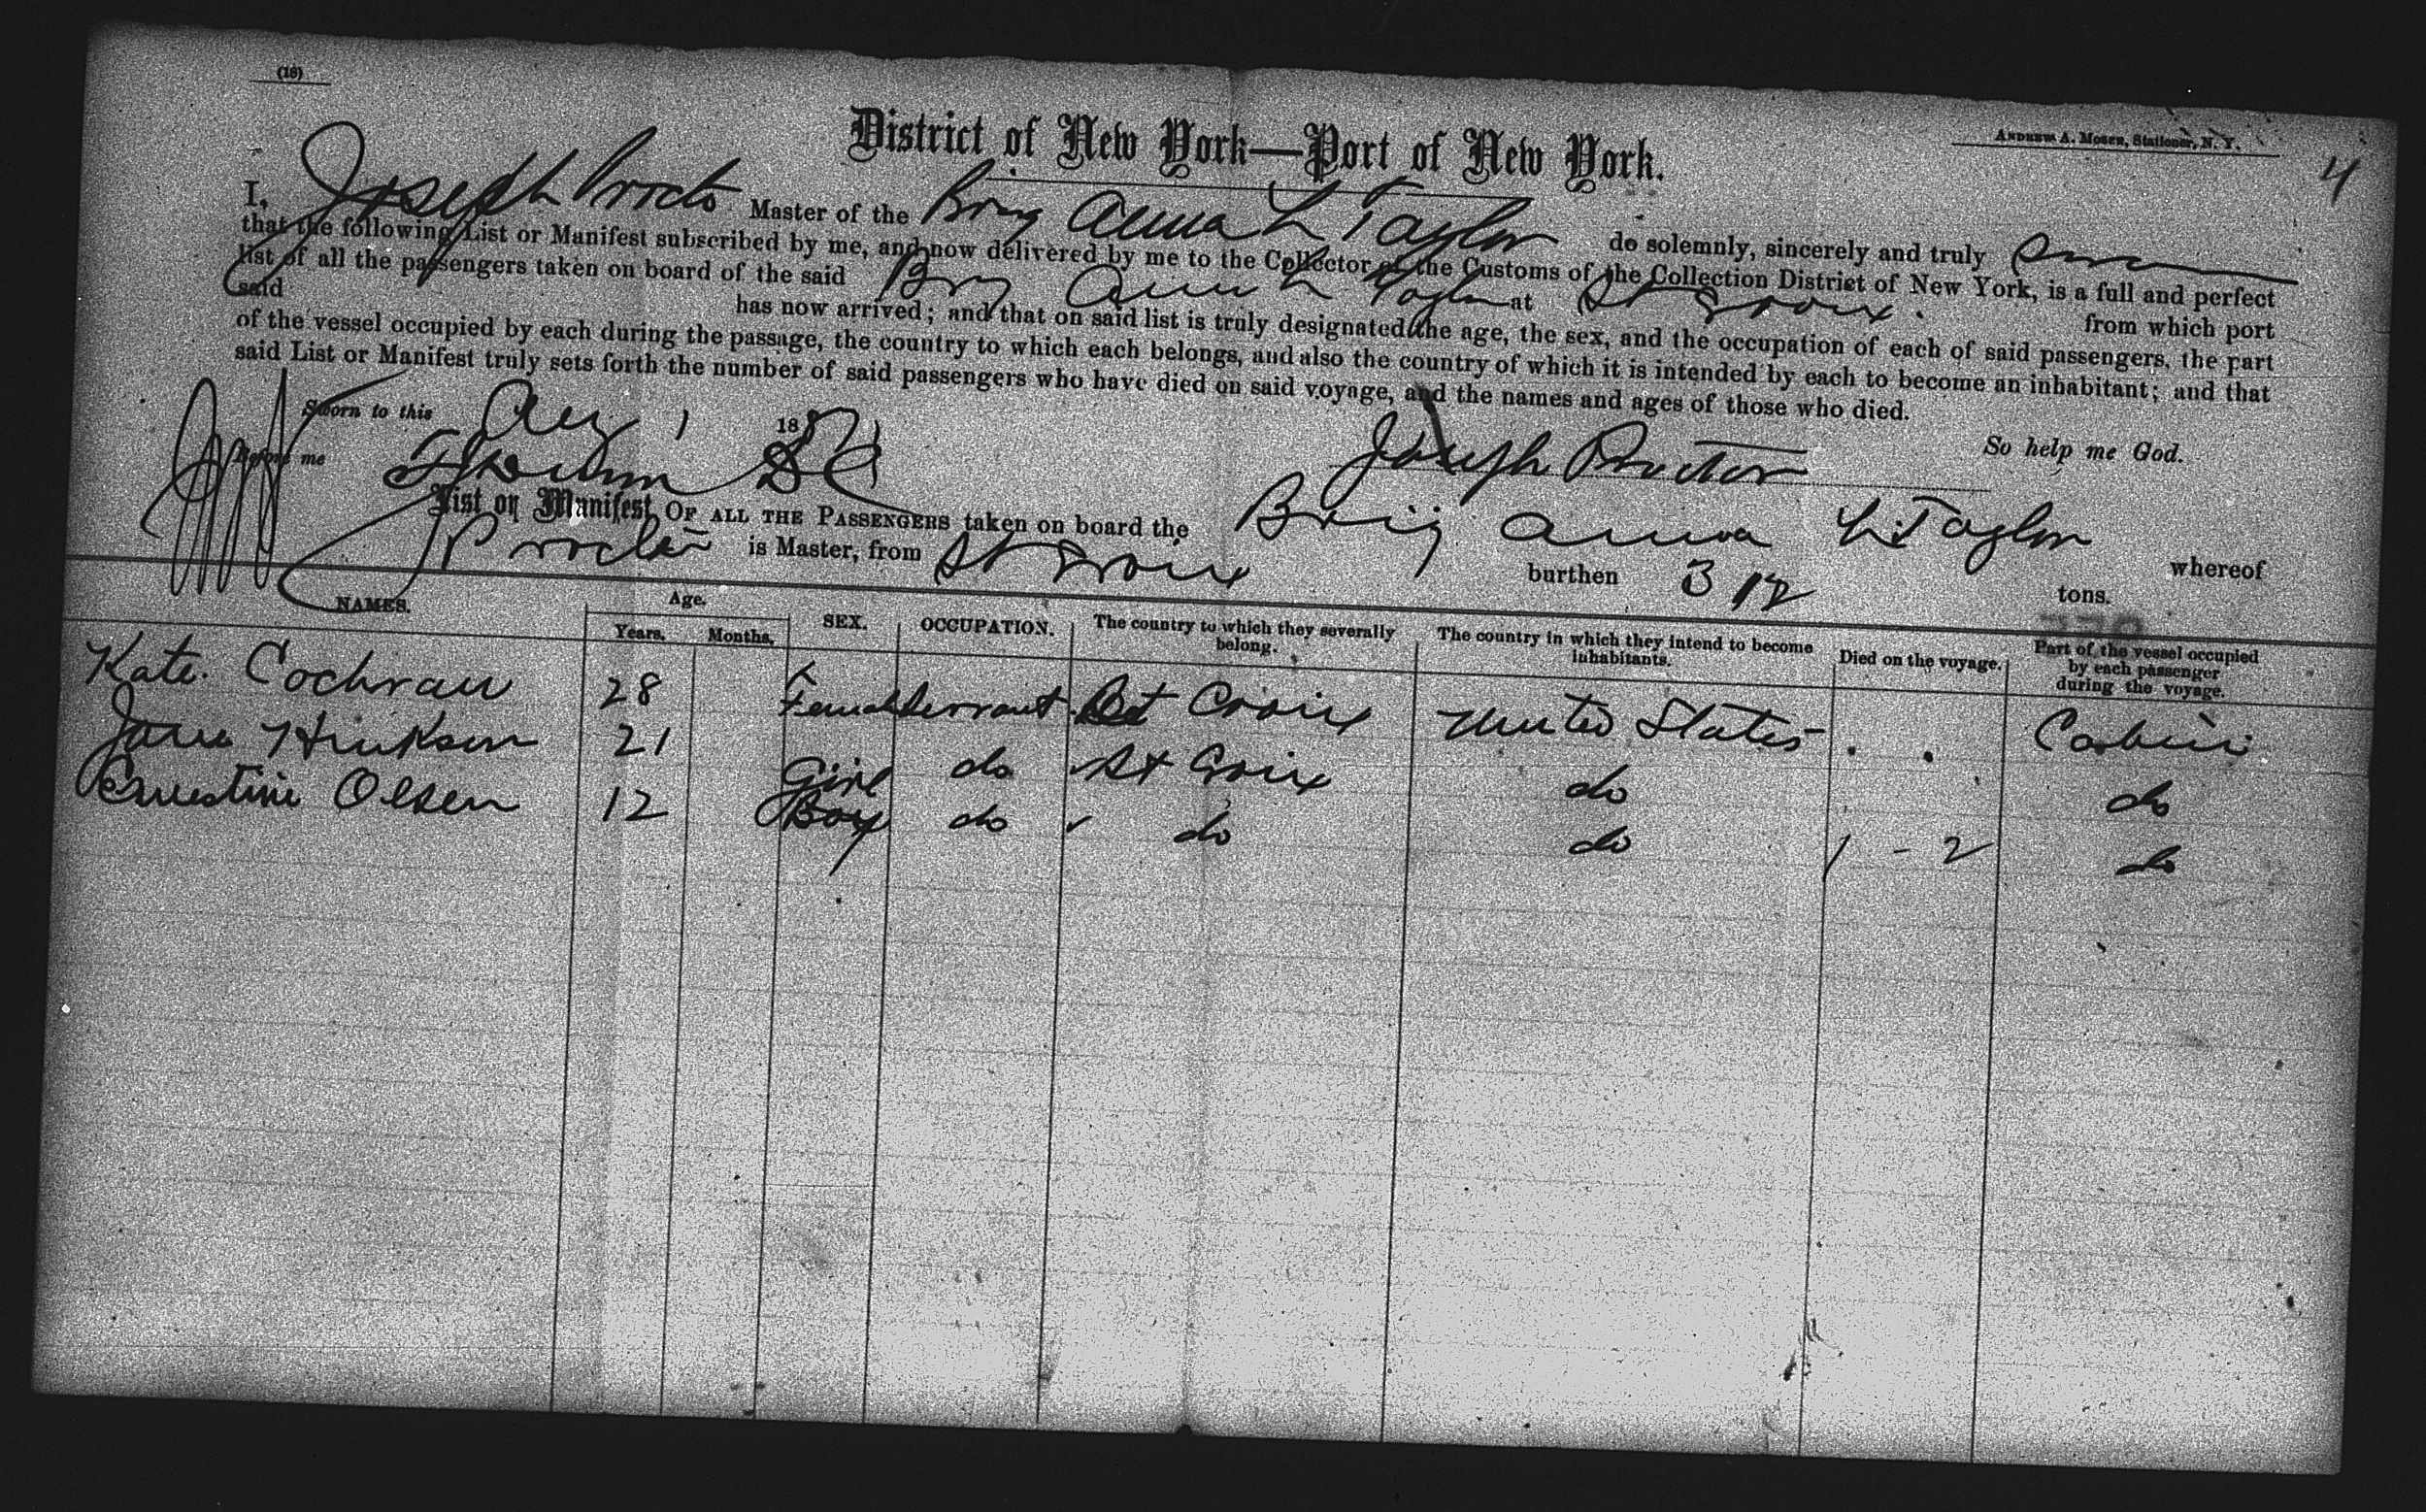 (18)
ANDREW A. MOSER, Stationer, N. Y.
4
District of New York—Port of New York.
I, Joseph Procto Master of the Brig Anna L Taylor do solemnly, sincerely and truly swear
that the following List or Manifest subscribed by me, and now delivered by me to the Collector of the Customs of the Collection District of New York, is a full and perfect
list of all the passengers taken on board of the said Brig Anna L Taylor at St Croix. from which port
said has now arrived; and that on said list is truly designated the age, the sex, and the occupation of each of said passengers, the part
of the vessel occupied by each during the passage, the country to which each belongs, and also the country of which it is intended by each to become an inhabitant; and that
said List or Manifest truly sets forth the number of said passengers who have died on said voyage, and the names and ages of those who died.
So help me God.
Sworn to this Aug 1 18
Before me
Joseph Proctor
List or Manifest OF ALL THE PASSENGERS taken on board the Brig Anna L. Taylor whereof
J Procter is Master, from St Croix burthen 312 tons.
NAMES. Age. Years. Months. SEX. OCCUPATION. The country to which they severally belong. The country in which they intend to become inhabitants. Died on the voyage. Part of the vessel occupied by each passenger during the voyage.
Kate. Cochran 28 Female Servant St Croix United States Cabin
Jane Hinkson 21 Girl do St Croix do do
Ernestine Olsen 12 Boy do do do 1 - 2 do